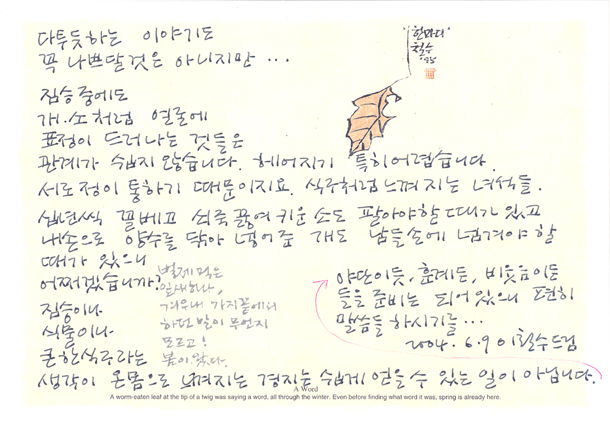 다투듯하는 이야기도
꼭 나쁘달것은 아니지만 ...
"한마디"
철수
짐승중에도
개·소처럼 얼른에
표정이 드러나는 것들은
관계가 쉽지 않습니다. 헤어지기 특히어렵습니다.
서로 정이 통하기 때문이지요. 식구처럼느껴지는 녀석들.
십년씩 꼴베고 쇠죽끓여 키운소도 팔아야할때가 있고
내손으로 양수를 닦아 넣어준 개도 남들손에 넘겨야 할
때가 있으니
어쩌겠습니까?
짐승이나
식물이나
큰 한식구라는
생각이 온몸으로 느껴지는 경지는 쉽게 얻을수 있는일이 아닙니다.
벌레먹은
잎새하나,
겨우내 가지끝에서
하던 말이 무언지
모르고!
봄이 왔다.
야단이듯, 훈계든, 비웃음이든
들을 준비는 되어있으니 편히
말씀들 하시기를...
2004. 6.9 이철수드림
A Word
A worm-eaten leaf at the tip of a twig was saying a word, all through the winter. Even before finding what word it was, spring is already here.